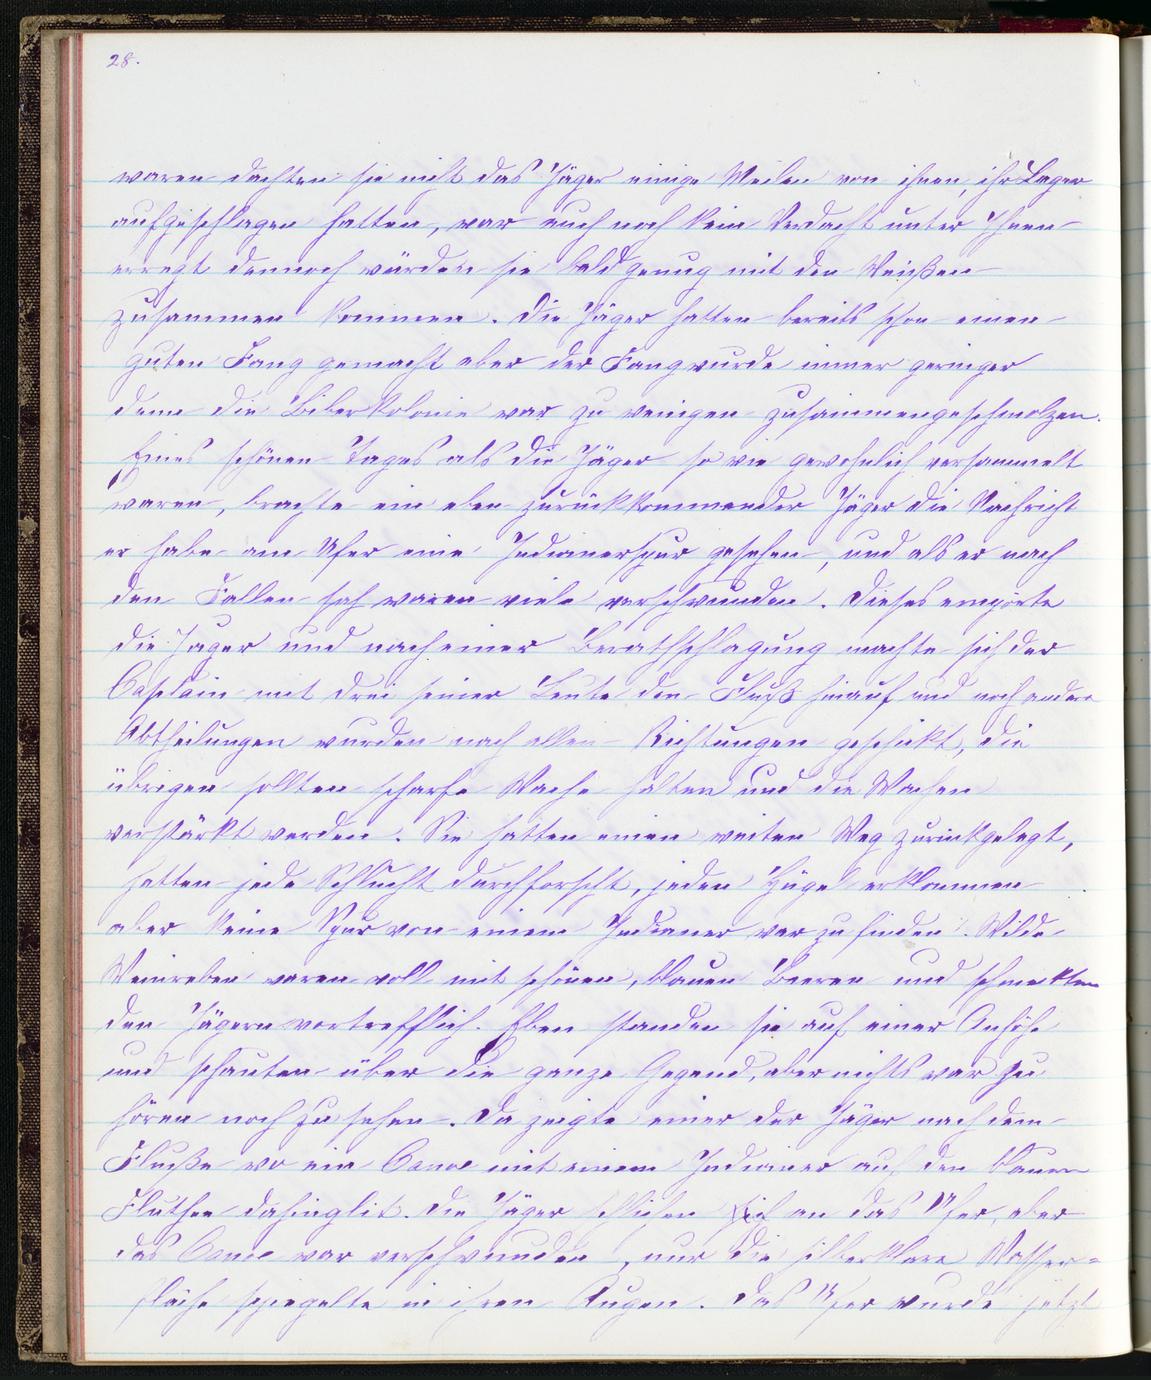 28.
waren dachten sie nicht das Jäger einige Meilen von ihnen, ihr Lager
aufgeschlagen hatten, war auch noch kein Verdacht unter Ihnen
erregt dennoch würden sie bald genug mit den Weißen
zusammen kommen. Die Jäger hatten bereits schon einen
guten Fang gemacht aber der Fang wurde immer geringer
denn die Biberkolonie war zu wenigen zusammengeschmolzen.
Eines schönen Tages als die Jäger so wie gewohnlich versammelt
waren, brachte ein eben zurückkommender Jäger die Nachricht
er habe am Ufer eine Indianerspur gesehen, und als er nach
den Fallen sah waren viele verschwunden. Dieses empörte
die Jager und nach einer Berathschlagung machte sich der
Captain mit drei seiner Leute den Fluß hinauf und noch andere
Abtheilungen wurden nach allen Richtungen geschickt, die
übrigen sollten scharfe Wache halten und die Wachen
verstärkt werden. Sie hatten einen weiten Weg zurückgelegt,
hatten jede Schlucht durchforscht, jeden Hügel erklommen
aber keine Spur von einem Indianer war zu finden. Wilde
Weinreben waren voll mit schönen, blauen Beeren und schmekten
den Jägern vortrefflich. Eben standen sie auf einer Anhöhe
und schauten über die ganze Gegend, aber nichts war zu
hören noch zu sehen. Da zeigte einer der Jäger nach dem
Fluße wo ein Canoe mit einem Indianer auf den blauen
Fluthen dahinglit. Die Jäger schlichen sich an das Ufer, aber
das Canoe war verschwunden, nur die silberklare Wasser=
fläche spiegelte in ihren Augen. Das Ufer wurde jetzt